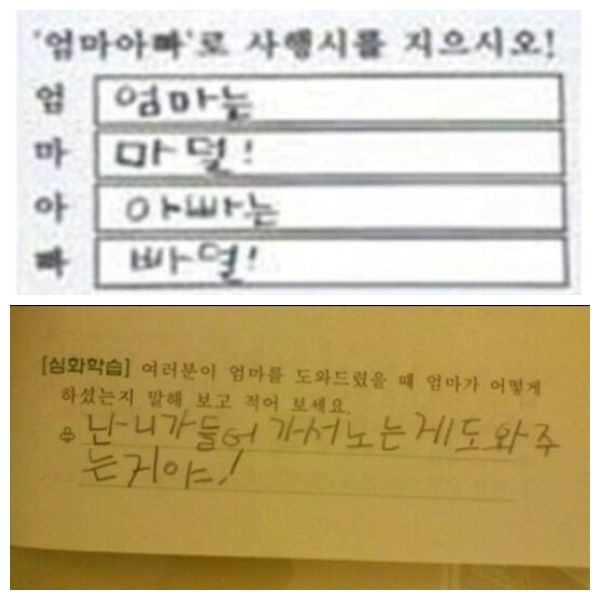 '엄마아빠'로 사행시를 지으시오!
엄 엄마는
마 마덜!
아 아빠는
빠 빠덜!
[심화학습] 여러분이 엄마를 도와드렸을 때 엄마가 어떻게
하셨는지 말해 보고 적어 보세요.
난 니가 들어가서 노는게 도와주
는거야!